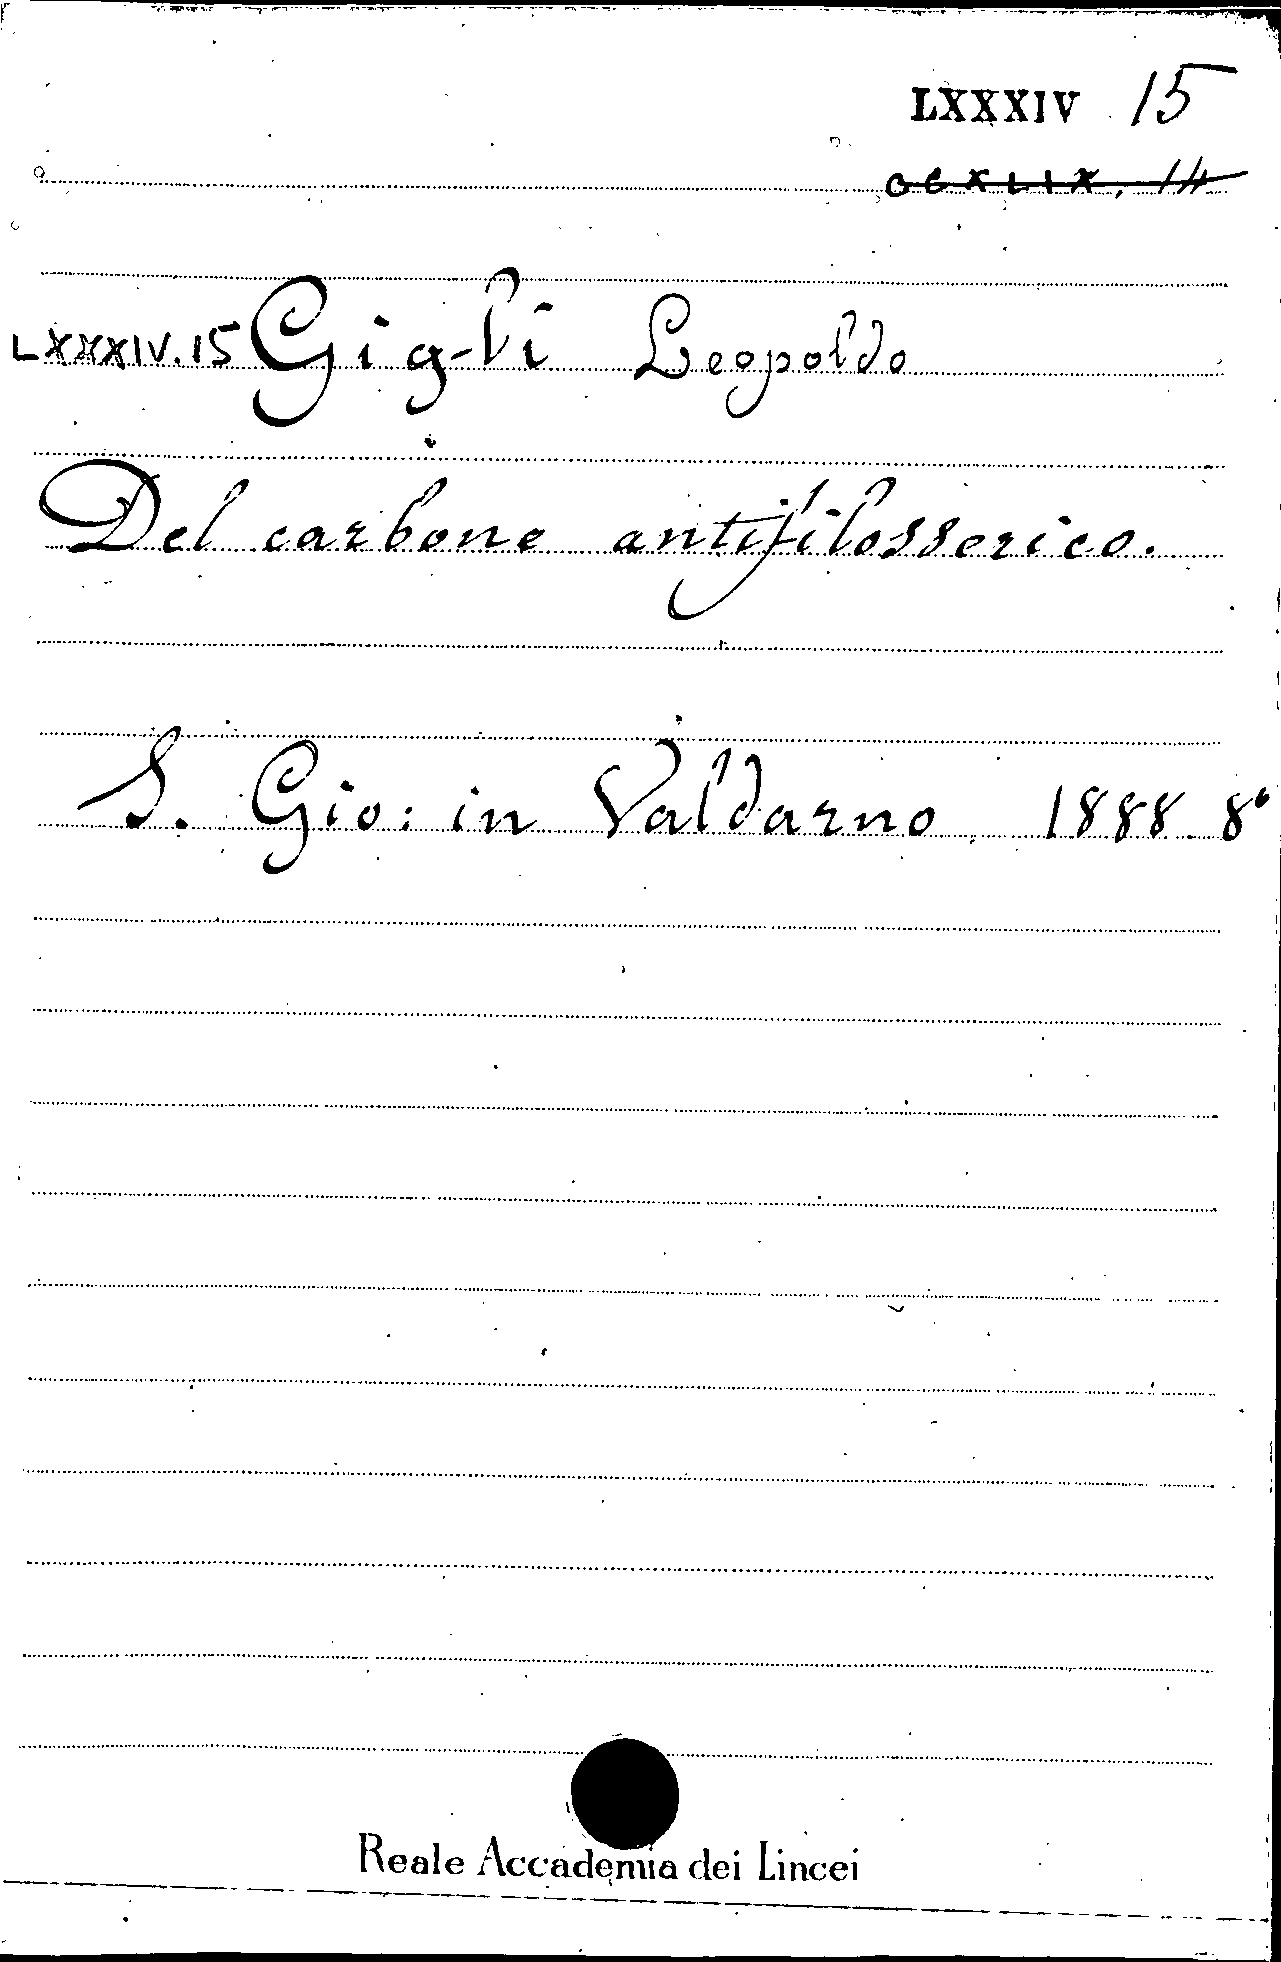 LXXXIV 15
CCXLIX, 14
LXXXIV.15 Gigli Leopoldo
Del carbone antifilosserico.
S. Gio: in Valdarno 1888 8°
Reale Accademia dei Lincei